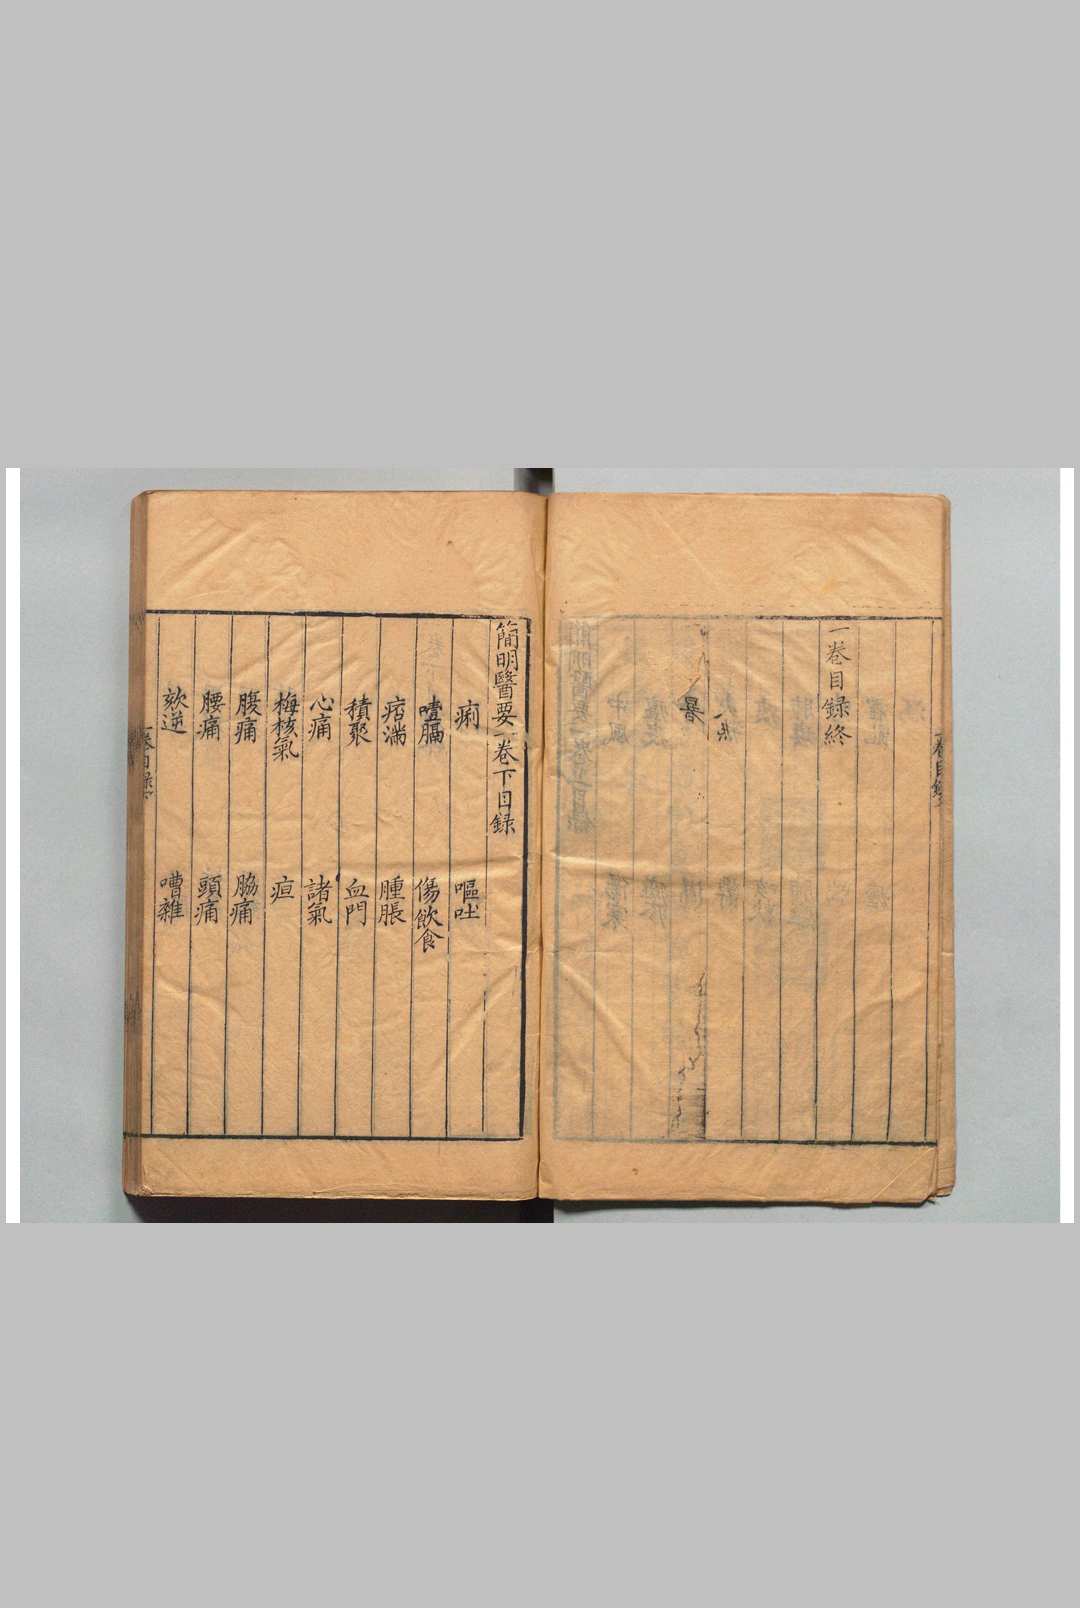 一卷目録終
簡明醫要一卷下目録
痢　嘔吐
噎膈　傷飲食
痞滿　腫脹
積聚　血門
心痛　諸氣
梅核氣　疸
腹痛　脇痛
腰痛　頭痛
欬逆　嘈雜